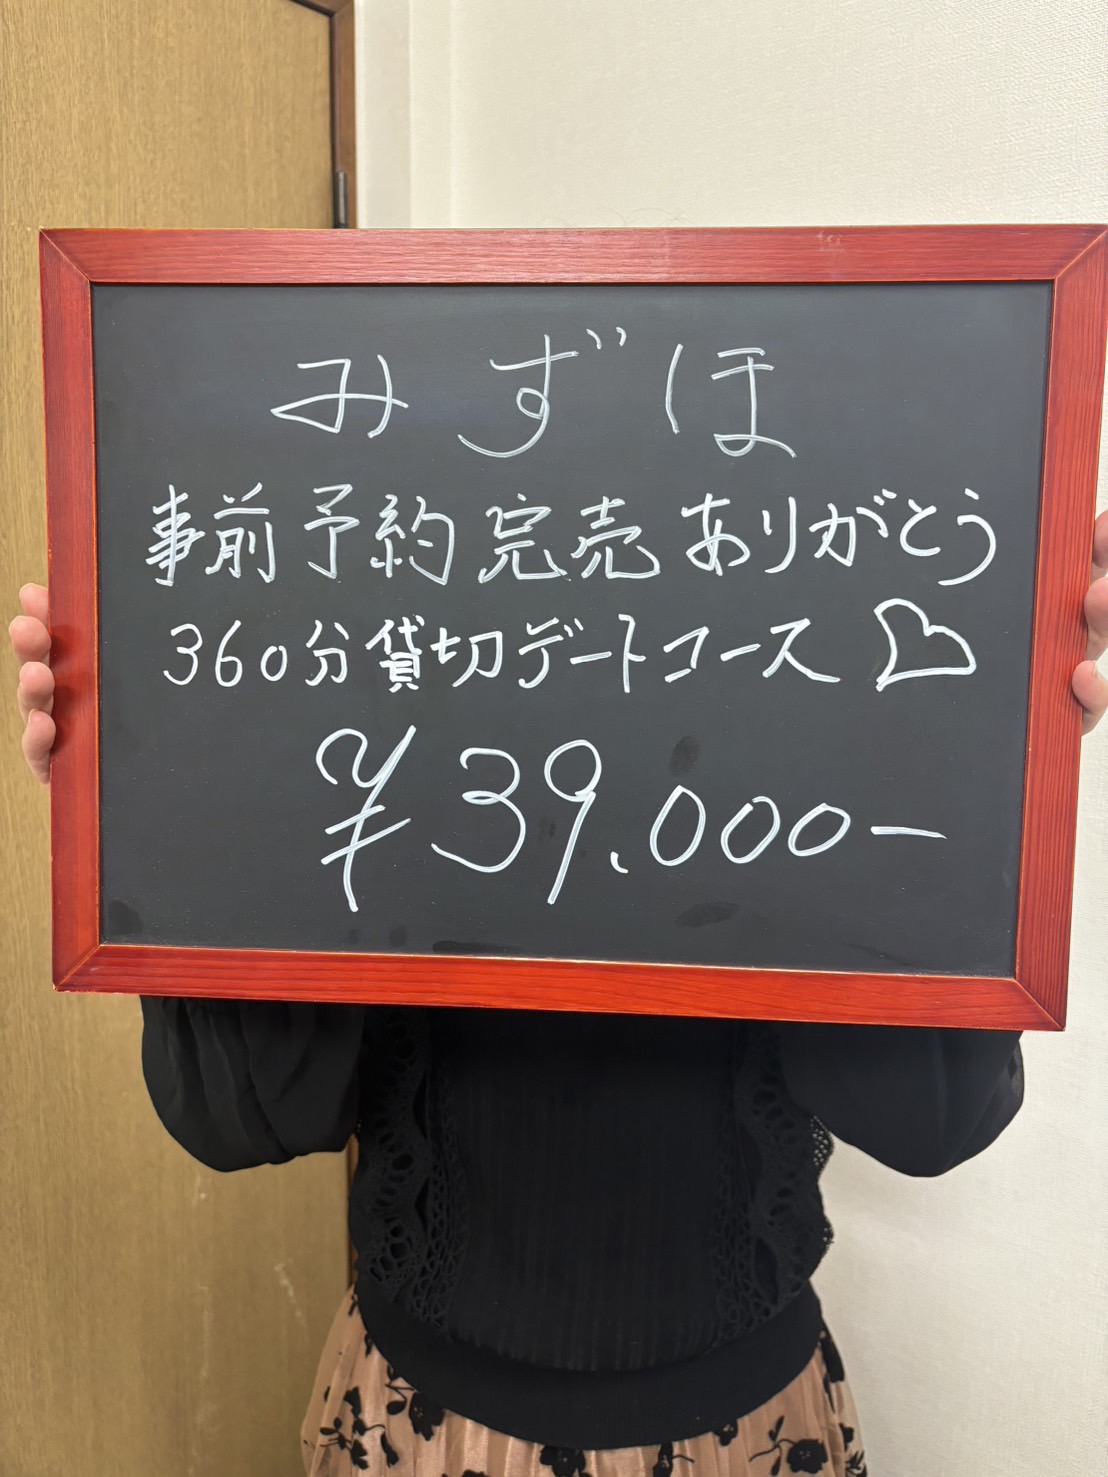 みずほ
事前予約完売ありがとう
360分貸切デートコース♡
¥39.000-